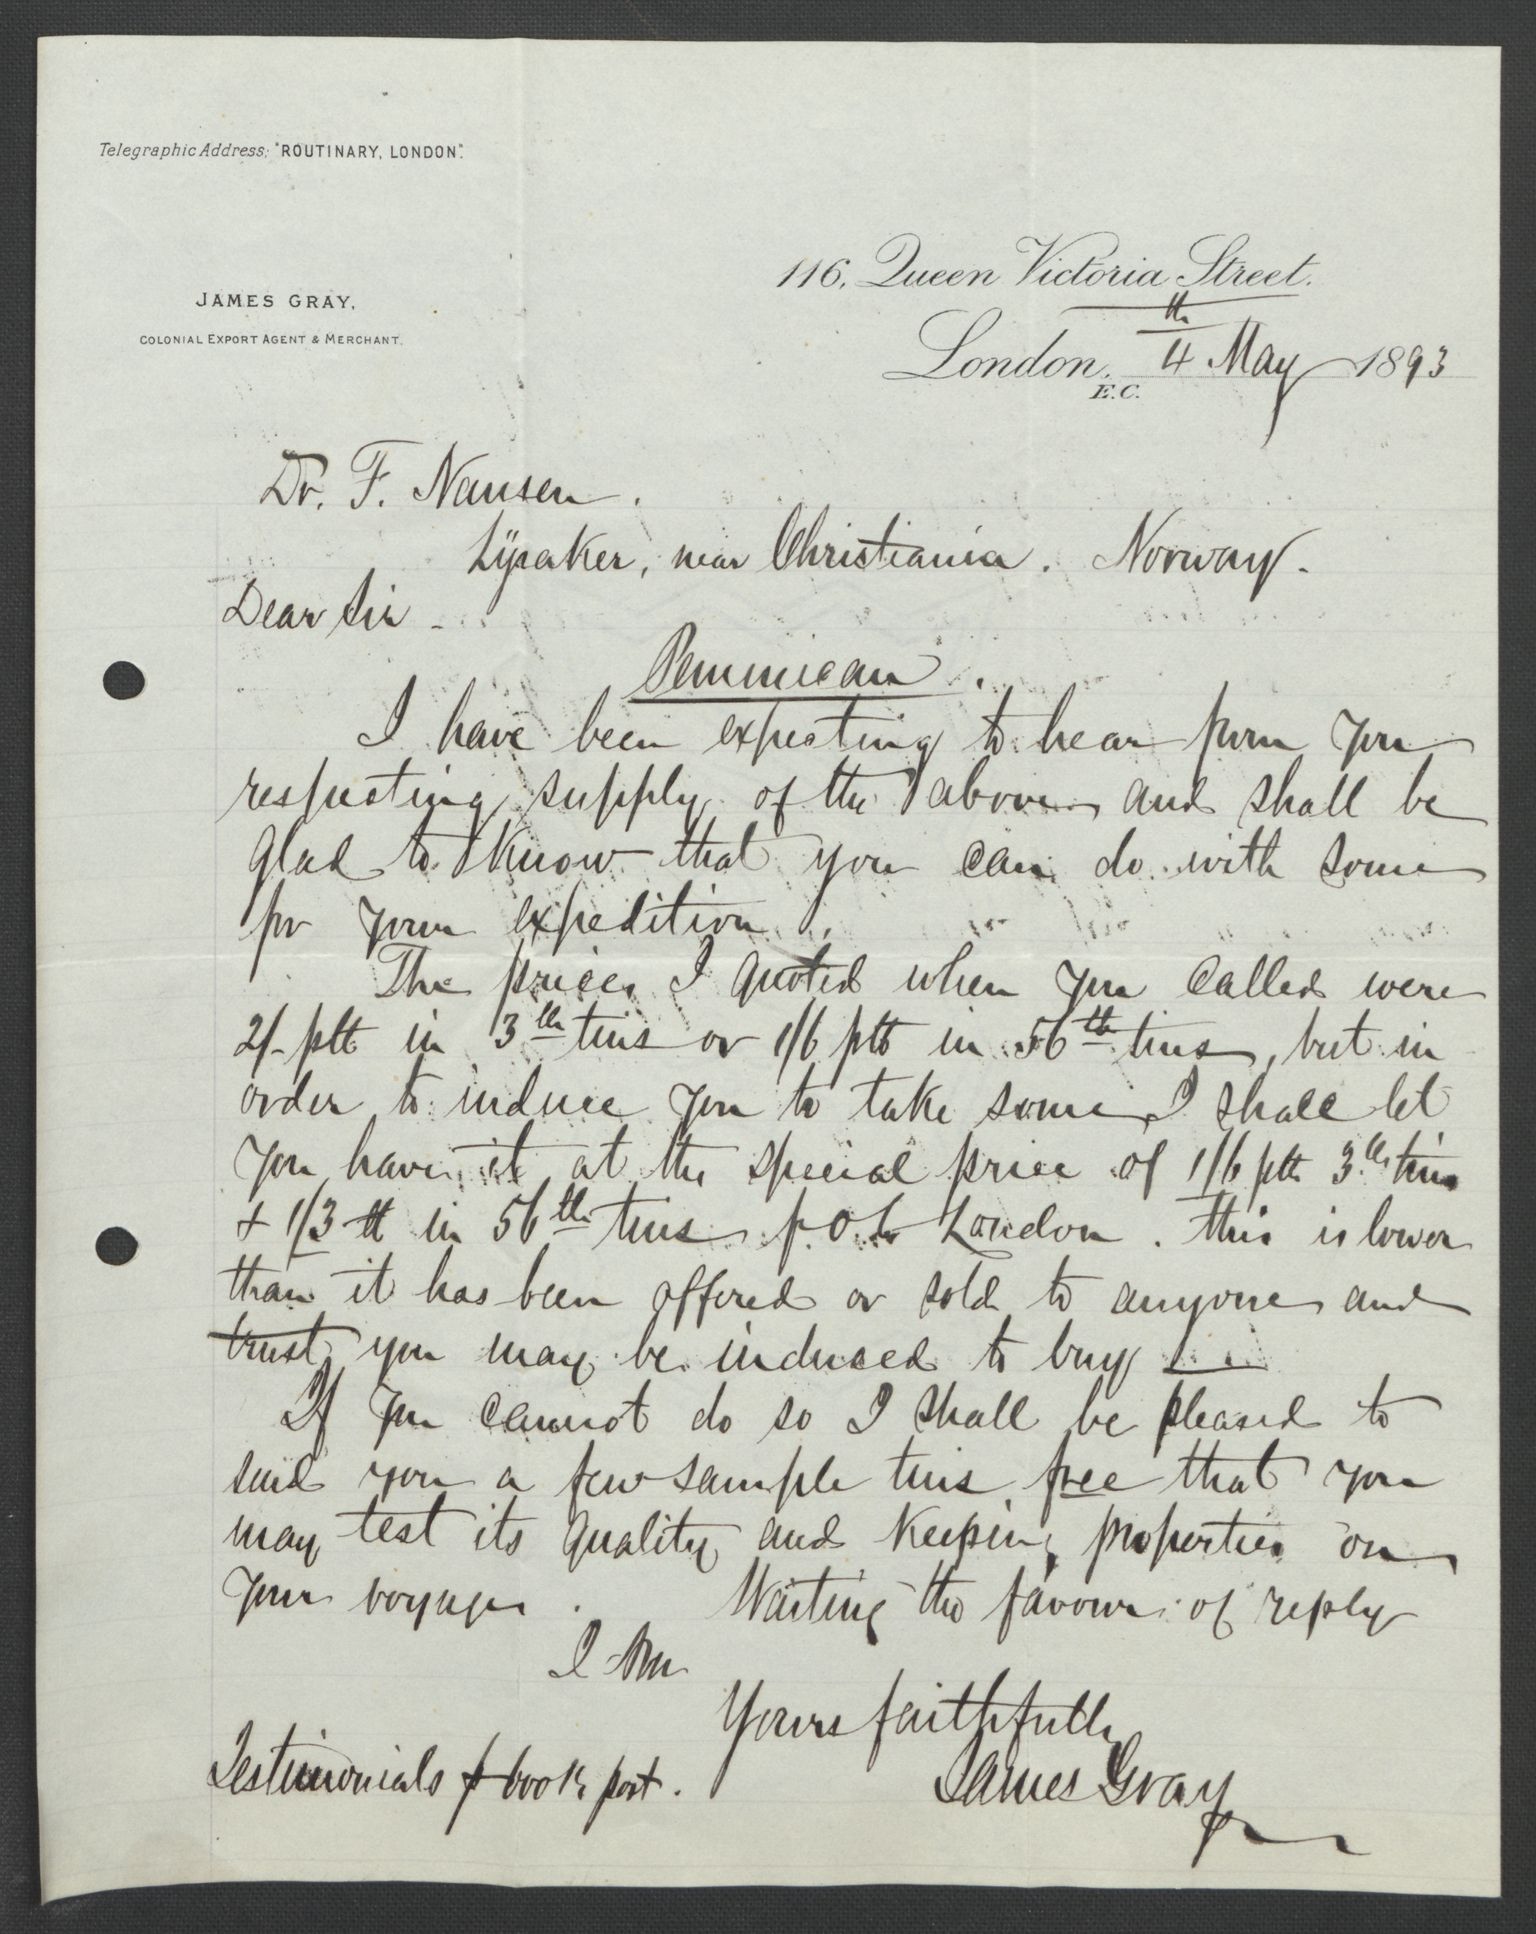 Telegraphic Address; "ROUTINARY, LONDON".
116, Queen Victoria Street.
JAMES GRAY,
COLONIAL EXPORT AGENT & MERCHANT.
London, E.C. 4th May 1893
Dr. F. Nansen.
Lÿsaker, near Christiania. Norway.
Dear Sir -
Pemmican.
I have been expecting to hear from you
respecting supply of the above and shall be
glad to know that you can do with some
for your expedition.
The prices I quoted when you called were
2/- plb in 3 lb tins or 1/6 plb in 56 lb tins, but in
order to induce you to take some I shall let
you have it at the special price of 1/6 plb 3 lb tins
+ 1/3 lb in 56 lb tins f.o.b London. This is lower
than it has been offered or sold to anyone and
trust you may be induced to buy —
If you cannot do so I shall be pleased to
send you a few sample tins free that you
may test its quality and keeping properties on
your voyage. Waiting the favour of reply
I am
Yours faithfully
James Gray
Testimonials p book post.